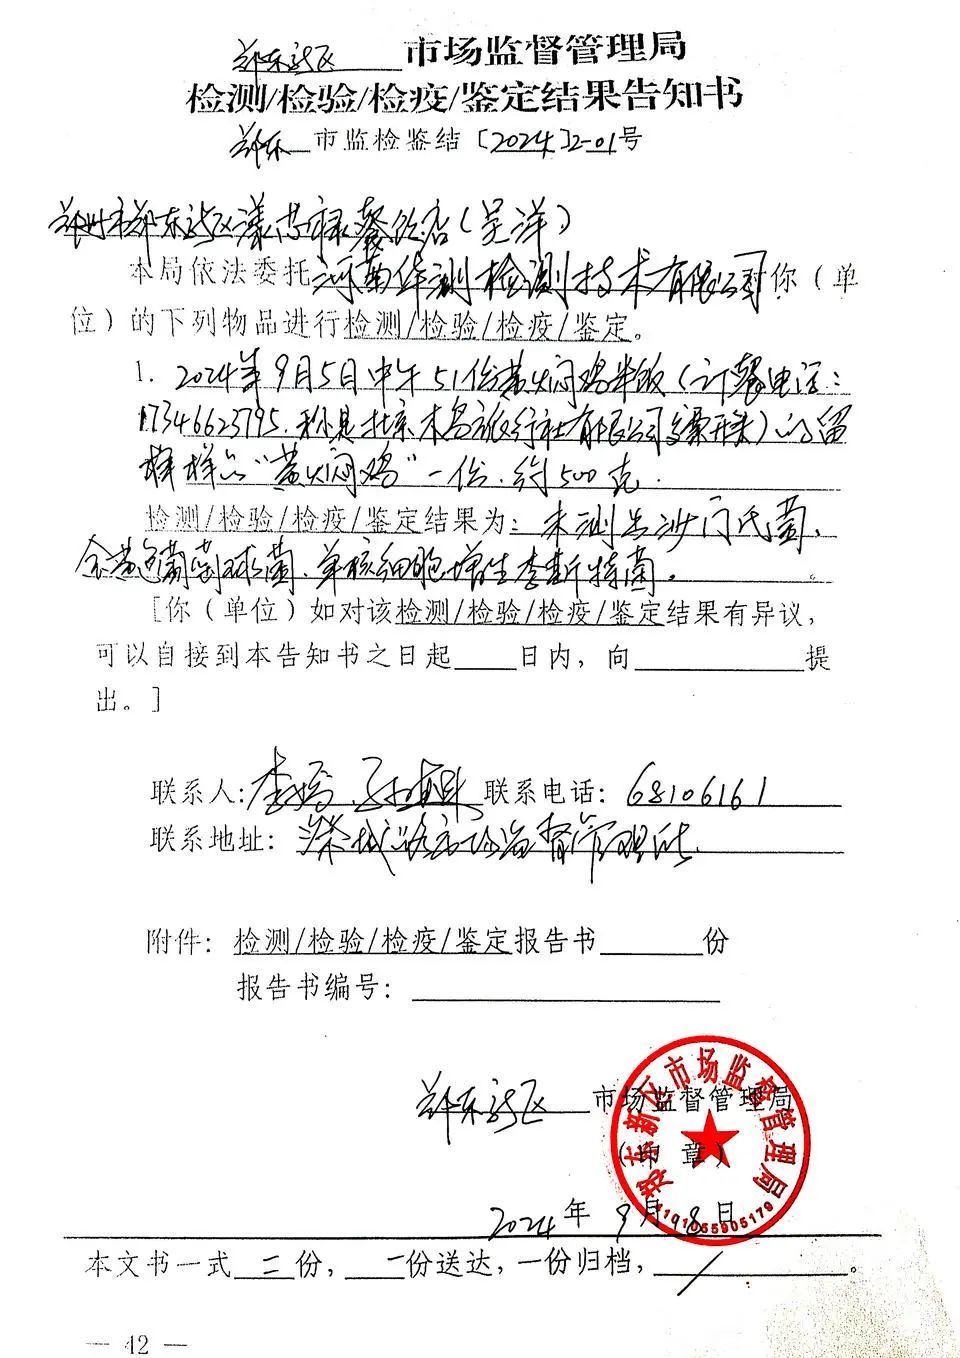 郑东新区 市场监督管理局
检测/检验/检疫/鉴定结果告知书
郑东 市监检鉴结〔2024〕2-01号
郑州市郑东新区漾芳禄餐饮店(吴洋)
本局依法委托河南华测检测技术有限公司对你(单
位)的下列物品进行检测/检验/检疫/鉴定。
1. 2024年9月5日中午51份黄焖鸡米饭(订餐电话:
17346623795.
北京木鸟旅行社有限公司发票开头)的留
样样品“黄焖鸡”一份.约500克.
检测/检验/检疫/鉴定结果为:未测出沙门氏菌、
金黄色葡萄球菌、单核细胞增生李斯特菌。
[你(单位)如对该检测/检验/检疫/鉴定结果有异议,
可以自接到本告知书之日起____日内,向________提
出。]
联系人: 联系电话:68106161
联系地址: 市场监督管理所
附件: 检测/检验/检疫/鉴定报告书____份
报告书编号:____
郑东新区 市场监督管理局
(印章)
郑东新区市场监督管理局
4101055905179
2024年9月18日
本文书一式三份,二份送达,一份归档,/。
— 42 —